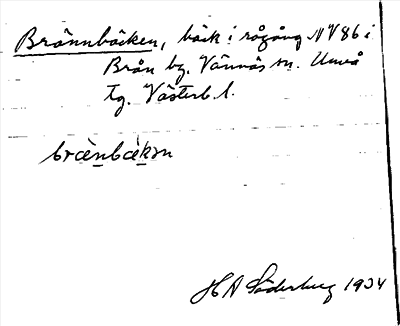 Brännbäcken, bäck i rågång NV 86 i
Brån by. Vännäs sn. Umeå
tg. Västerb. l.
brænbækən
H A Söderberg 1934